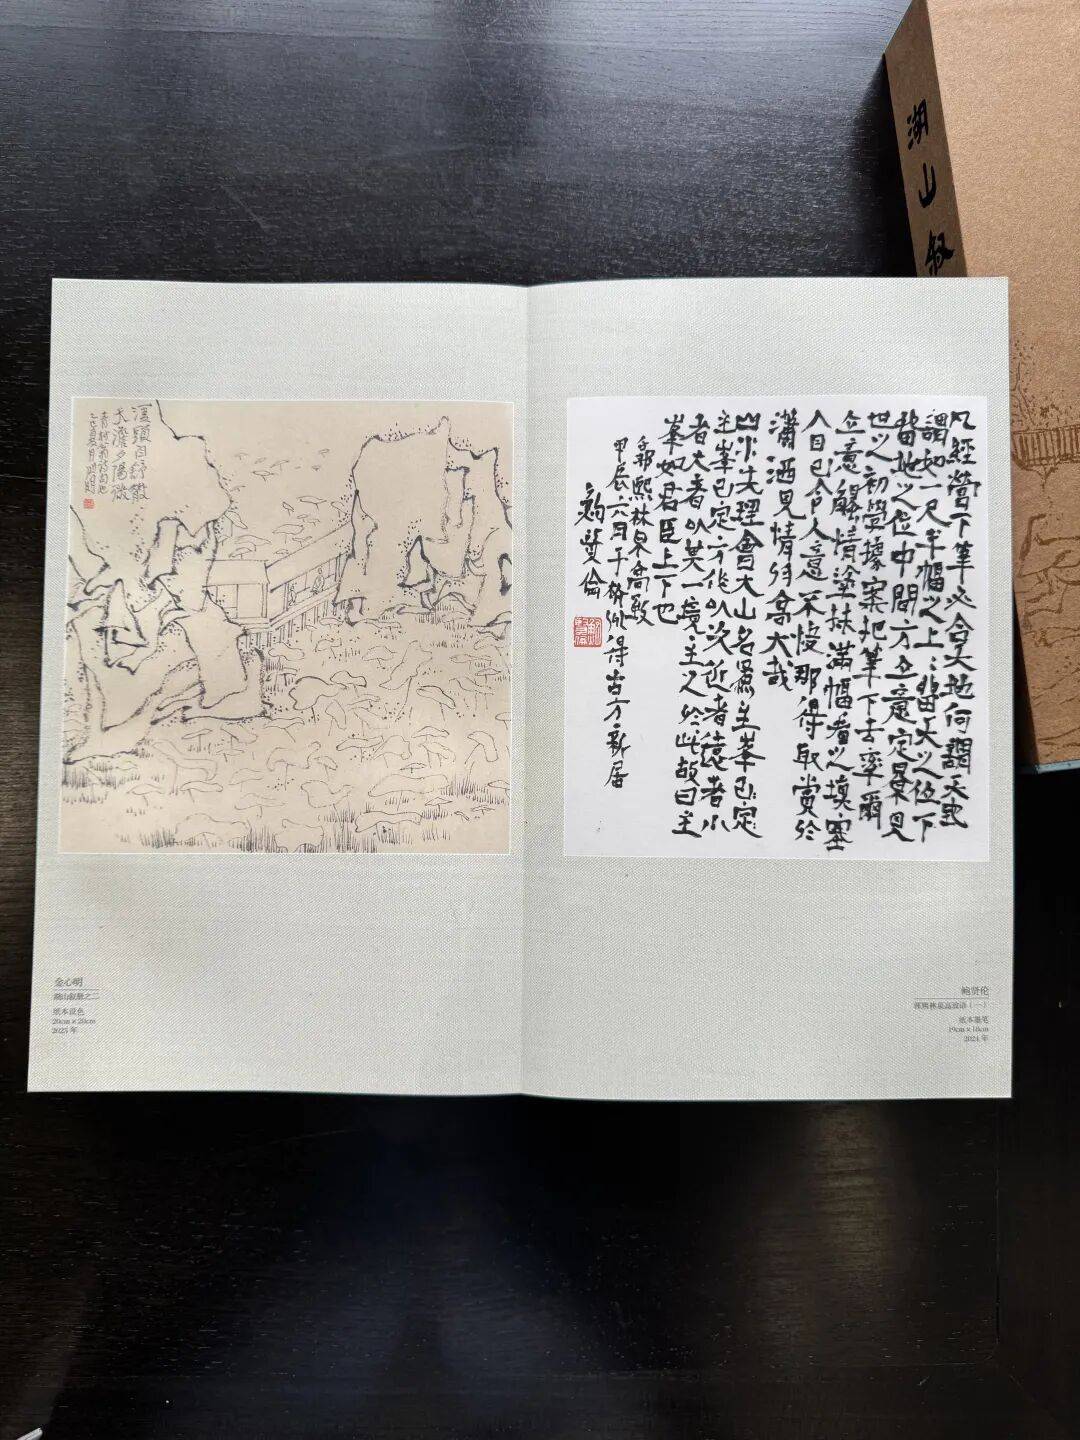 湖山叙
自舒散
夕陽微
凡經營下筆必合天地何謂天地
謂如一尺半幅之上上留天之位下
留地之位中間方立意定景見
世之初學據案把筆下去率爾
立意觸情塗抹滿幅看之填塞
人目已令人意不快那得取賞於
瀟洒見情於高大哉
山水先理會大山名為主峯已定
主峯已定方作以次近者遠者小
者大者以其一境主之於此故曰主
峯如君臣上下也
郭熙林泉高致
甲辰六月于杭州得古方新居
鮑賢倫
金心明
纸本设色
20cm×20cm
2025 年
鲍贤伦
郭熙林泉高致语（一）
纸本墨笔
19cm×18cm
2024 年